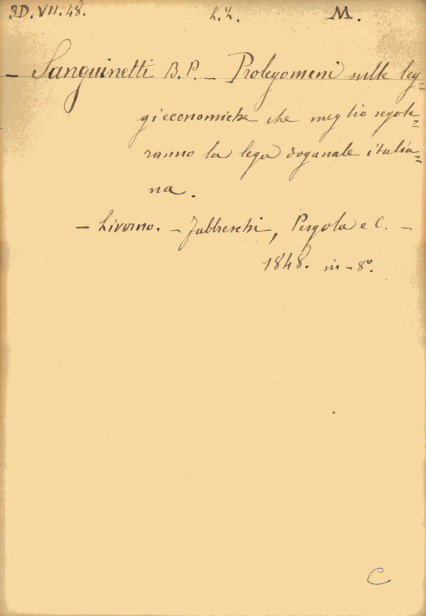 3D. VII. 48. L. Z. M.
— Sanguinetti B. P. — Prolegomeni sulle leg=
gi economiche che meglio regole=
ranno la lega doganale italia=
na.
— Livorno. — Fabbreschi, Pergola e C. —
1848. in-8°.
C